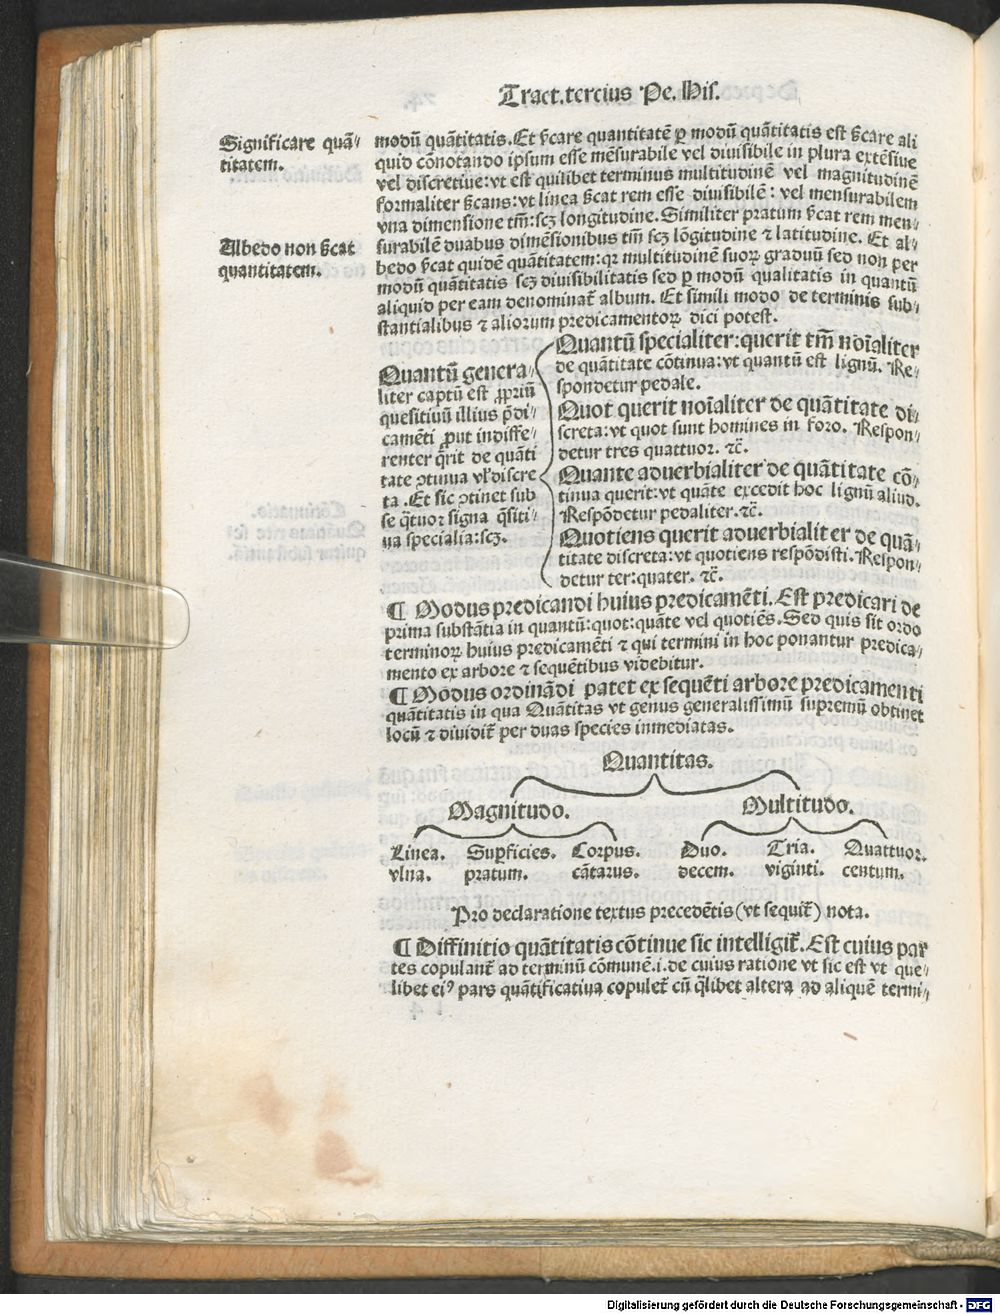 Tract.tercius Pe. His.
Significare quã⸗
titatem.
modũ quãtitatis. Et s̃care quantitatẽ ꝑ modũ quãtitatis est s̃care ali
quid cõnotando ipsum esse mẽsurabile vel diuisibile in plura extẽsiue
vel discretiue: vt est quilibet terminus multitudinẽ vel magnitudinẽ
formaliter s̃cans: vt linea s̃cat rem esse diuisibilẽ: vel mensurabilem
vna dimensione tm̃: scꝫ longitudine. Similiter pratum s̃cat rem men⸗
surabilẽ duabus dimẽsionibus tm̃ scꝫ lõgitudine ⁊ latitudine. Et al⸗
Albedo non s̃cat
quantitatem.
bedo s̃cat quidẽ quãtitatem: qꝛ multitudinẽ suoꝝ graduũ sed non per
modũ quãtitatis scꝫ diuisibilitatis sed ꝑ modũ qualitatis in quantũ
aliquid per eam denominat̃ album. Et simili modo de terminis sub⸗
stantialibus ⁊ aliorum predicamentoꝝ dici potest.
Quantũ genera⸗
liter captũ est ꝓpriũ
quesitiuũ illius p̃di⸗
camẽti ꝓut indiffe⸗
renter q̃rit de quãti
tate ↄtinua vl̕ discre
ta. Et sic ↄtinet sub
se q̃tuor signa q̃siti⸗
ua specialia: scꝫ.
Quantũ specialiter: querit tm̃ noĩaliter
de quãtitate cõtinua: vt quantũ est lignũ. Re⸗
spondetur pedale.
Quot querit noĩaliter de quãtitate di⸗
screta: vt quot sunt homines in foro. Respon⸗
detur tres quattuor. ⁊c̃.
Quante aduerbialiter de quãtitate cõ⸗
tinua querit: vt quãte excedit hoc lignũ aliud.
Respõdetur pedaliter. ⁊c̃.
Quotiens querit aduerbialiter de quã⸗
titate discreta: vt quotiens respõdisti. Respon⸗
detur ter: quater. ⁊c̃.
¶ Modus predicandi huius predicamẽti. Est predicari de
prima substãtia in quantũ: quot: quãte vel quotiẽs. Sed quis sit ordo
terminoꝝ huius predicamẽti ⁊ qui termini in hoc ponantur predica⸗
mento ex arbore ⁊ sequẽtibus videbitur.
¶ Modus ordinãdi patet ex sequẽti arbore predicamenti
quãtitatis in qua Quãtitas vt genus generalissimũ supremũ obtinet
locũ ⁊ diuidit̃ per duas species inmediatas.
Quantitas.
Magnitudo. Multitudo.
Linea. Suꝑficies. Corpus. Duo. Tria. Quattuor.
vlna. pratum. cãtarus. decem. viginti. centum.
Pro declaratione textus precedẽtis (vt sequit̃) nota.
¶ Diffinitio quãtitatis cõtinue sic intelligit̃. Est cuius par
tes copulant̃ ad terminũ cõmunẽ .i. de cuius ratione vt sic est vt que⸗
libet eiꝰ pars quãtificatiua copulet̃ cũ q̃libet altera ad aliquẽ termi⸗
Digitalisierung gefördert durch die Deutsche Forschungsgemeinschaft - DFG